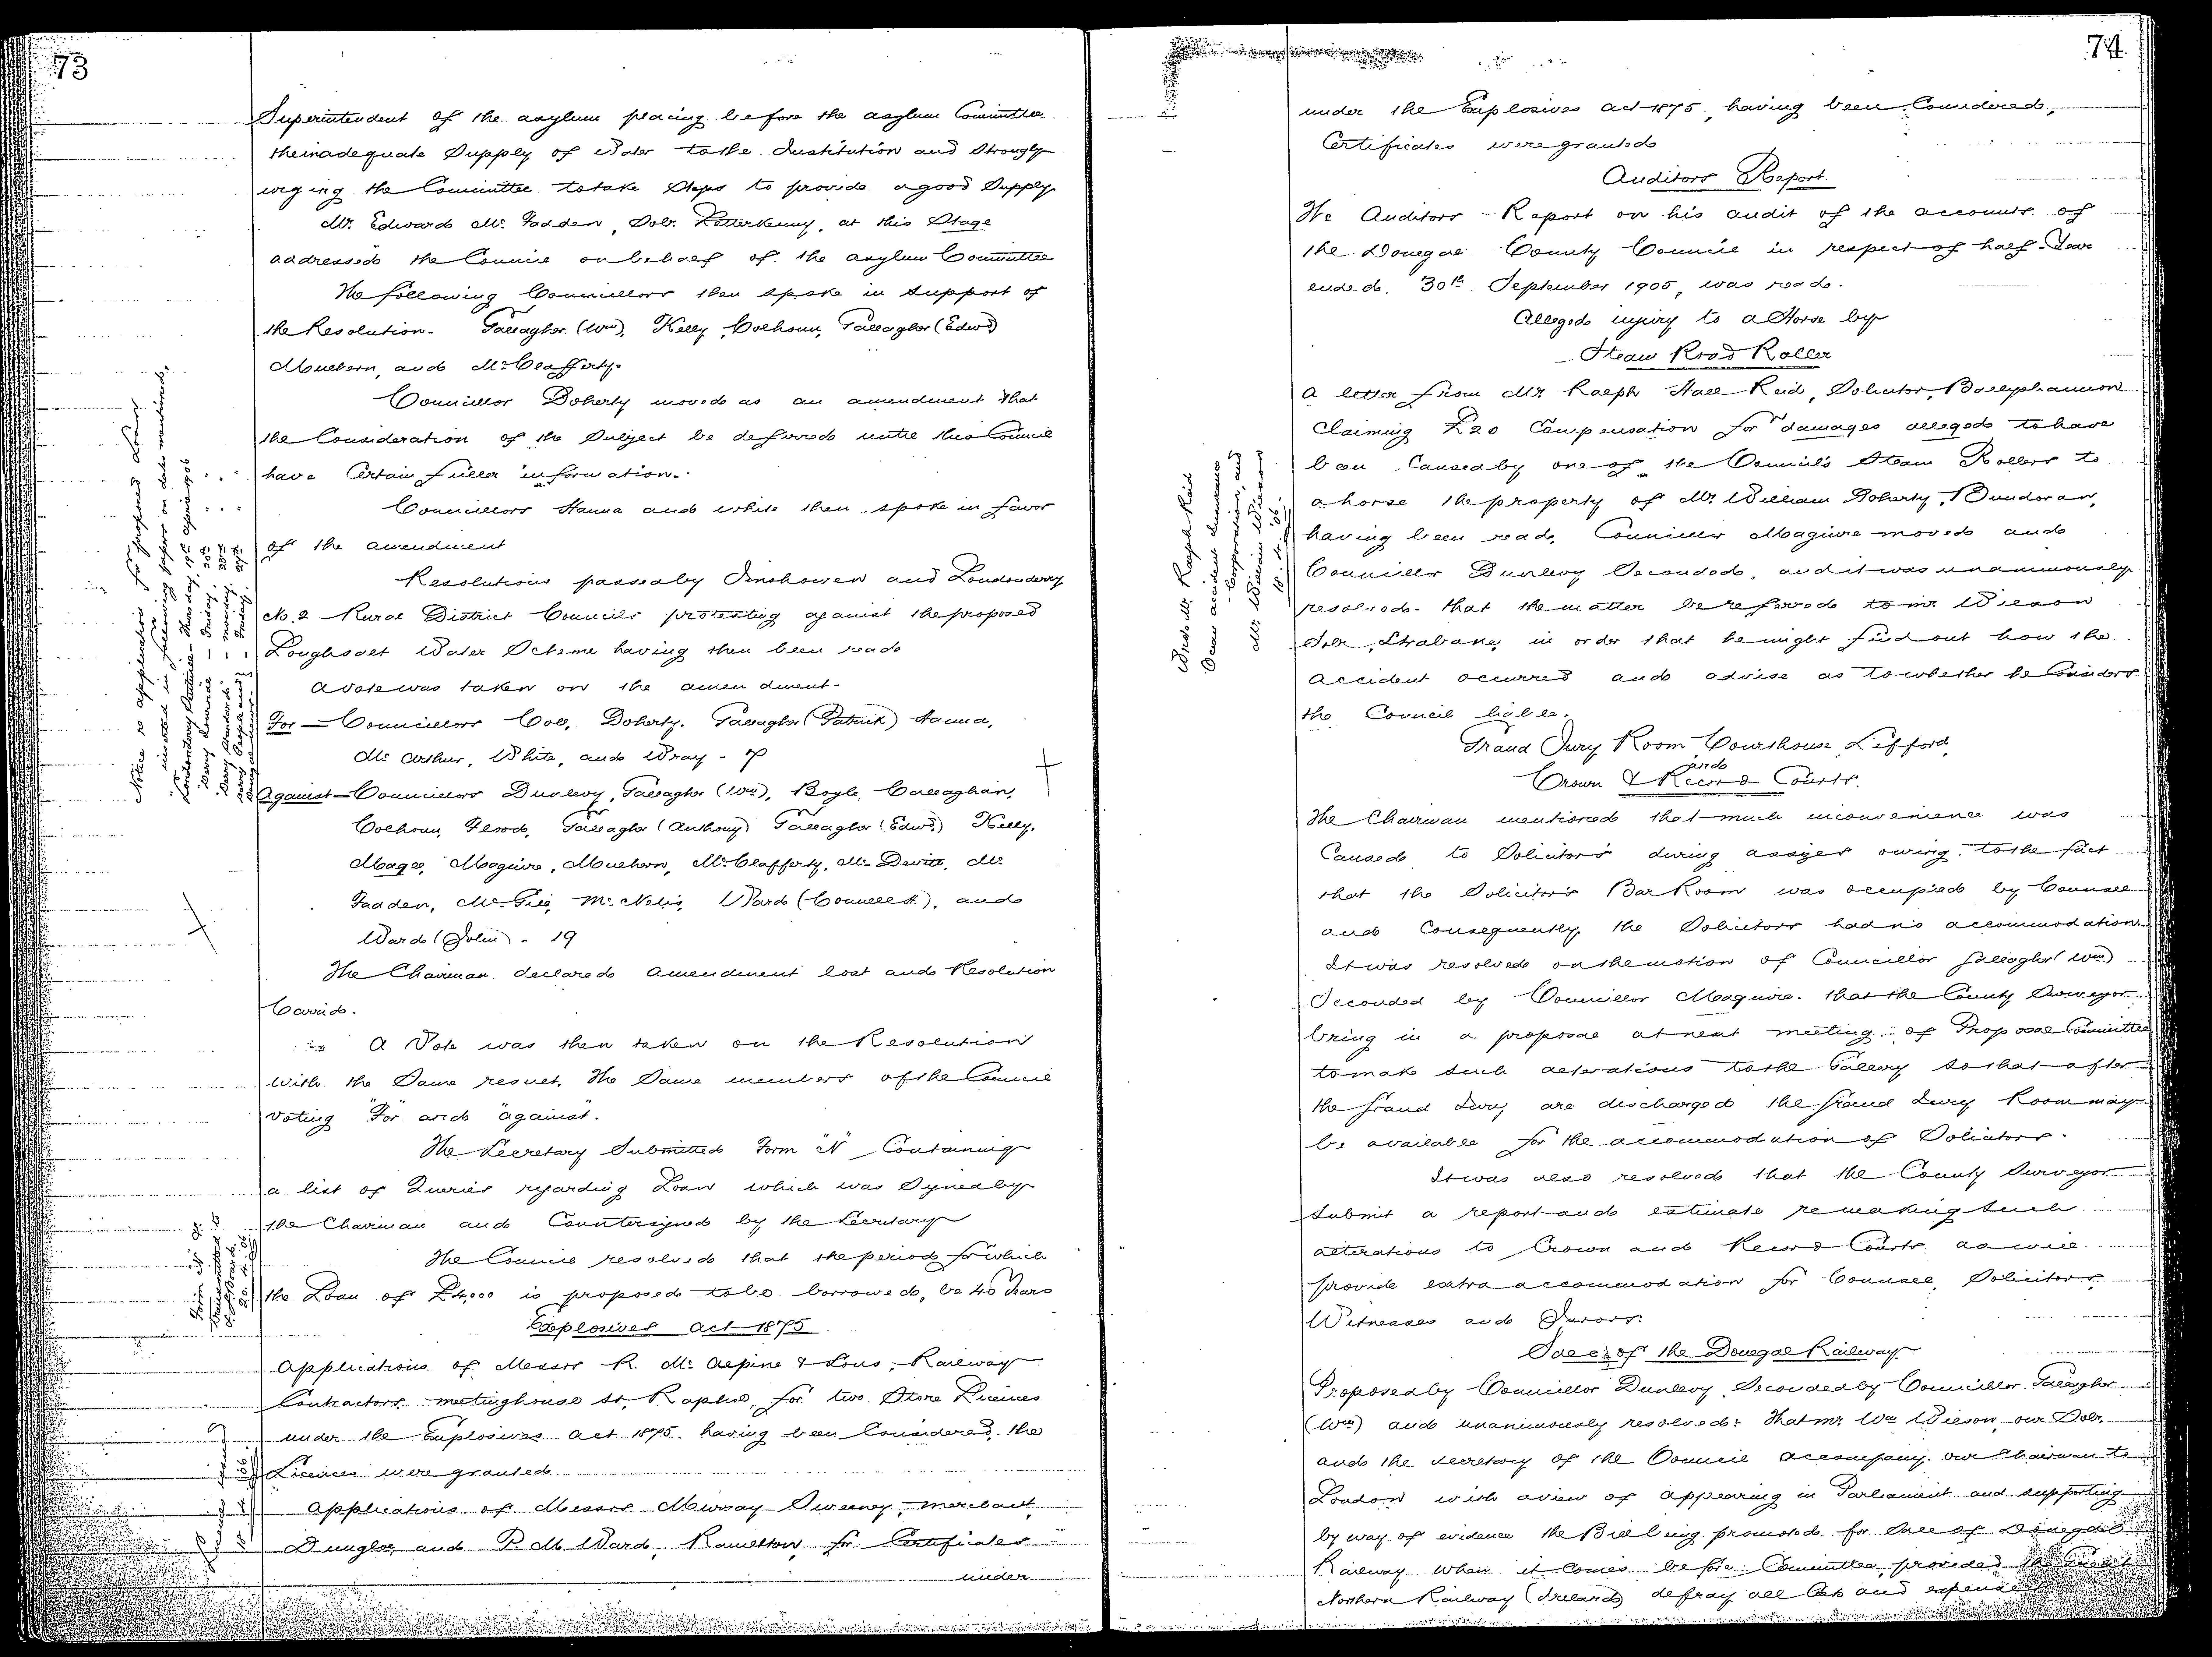 73
Superintendent of the asylum placing before the asylum Committee
the inadequate Supply of Water to the Institution and Strongly
urging the Committee to take Steps to provide a good Supply
Mr. Edward Mc Fadden, Solr. Letterkenny, at this Stage
addressed the Council on behalf of the asylum Committee
The following Councillors then spoke in support of
the Resolution - Gallagher (Wm), Kelly, Colhoun, Gallagher (Edwd)
Mulhern, and McClafferty.
Councillor Doherty moved as an amendment that
the Consideration of the Subject be deferred until this Council
have Certain fuller information.
Councillors Hanna and White then spoke in favor
of the amendment
Resolutions passed by Inishowen and Londonderry
No. 2 Rural District Councils protesting against the proposed
Loughsalt Water Scheme having then been read
a vote was taken on the amendment -
For — Councillors Coll, Doherty, Gallagher (Patrick) Hanna,
Mc Arthur, White, and Wray - 7
Against — Councillors Dunlevy, Gallagher (Wm), Boyle, Callaghan,
Colhoun, Flood, Gallagher (Anthony) Gallagher (Edwd) Kelly,
Magee, Maguire, Mulhern, McClafferty, Mc Devitt, Mc
Fadden, McGill, McNelis, Ward (Connell S.), and
Ward (John) - 19
The Chairman declared amendment lost and Resolution
Carried.
A Vote was then taken on the Resolution
with the Same result, the Same members of the Council
voting "For" and "against".
The Secretary Submitted Form "N" Containing
a list of Queries regarding Loan which was Signed by
the Chairman and Countersigned by the Secretary
The Council resolved that the period for which
the Loan of £4,000 is proposed to be borrowed, be 40 Years
Explosives Act 1875
Applications of Messrs R. McAlpine & Sons, Railway
Contractors, meetinghouse St. Raphoe, for two Store Licences
under the Explosives Act 1875, having been Considered, the
Licences were granted
Applications of Messrs Murray Sweeney, merchant,
Dungloe, and P. M. Ward, Ramelton, for Certificates
under
Notice re application for proposed Loan
inserted in following papers on dates mentioned.
Londonderry Sentinel - Thursday, 19th April 1906
Derry Journal - Friday, 20th " "
Derry Standard - monday, 23rd " "
Derry People and
Donegal News - Friday, 27th
Form "N"
transmitted to
20. 4. 06
74
under the Explosives act 1875, having been Considered,
Certificates were granted
Auditors Report.
The Auditors Report on his audit of the accounts of
the Donegal County Council in respect of half-Year
ended 30th September 1905, was read.
Alleged injury to a Horse by
Steam Road Roller
A letter from Mr Ralph Hall Reid, Solicitor, Ballyshannon
Claiming £20 Compensation for damages alleged to have
been Caused by one of the Council's Steam Rollers to
a horse the property of Mr. William Doherty, Bundoran,
having been read, Councillor Maguire moved and
Councillor Dunlevy Seconded, and it was unanimously
resolved - that the matter be referred to Mr Wilson
Solr, Strabane, in order that he might find out how the
accident occurred and advise as to whether he Considers
the Council liable.
Grand Jury Room, Courthouse, Lifford,
and
Crown & Record Courts.
The Chairman mentioned that much inconvenience was
Caused to Solicitors during assizes owing to the fact
that the Solicitor's Bar Room was occupied by Counsel
and Consequently the Solicitors had no accommodation.
It was resolved on the motion of Councillor Gallagher (Wm)
Seconded by Councillor Maguire - that the County Surveyor
bring in a proposal at next meeting of Proposal Committee
to make such alterations to the Gallery so that after
the Grand Jury are discharged the Grand Jury Room may
be available for the accommodation of Solicitors.
It was also resolved that the County Surveyor
Submit a report and estimate re making such
alterations to Crown and Record Courts as will
provide extra accommodation for Counsel, Solicitors,
Witnesses and Jurors.
Sale of the Donegal Railway
Proposed by Councillor Dunlevy, Seconded by Councillor Gallagher
(Wm) and unanimously resolved: That Mr. Wm Wilson, our Solr.
and the Secretary of the Council accompany our Chairman to
London with a view of appearing in Parliament and supporting
by way of evidence the Bill being promoted for Sale of Donegal
Railway when it Comes before Committee, provided the Great
Northern Railway (Ireland) defray all Costs and expenses
Wrote Mr. Ralph Reid
Ocean accident Insurance
Corporation, and
Mr. William Wilson
18. 4. '06